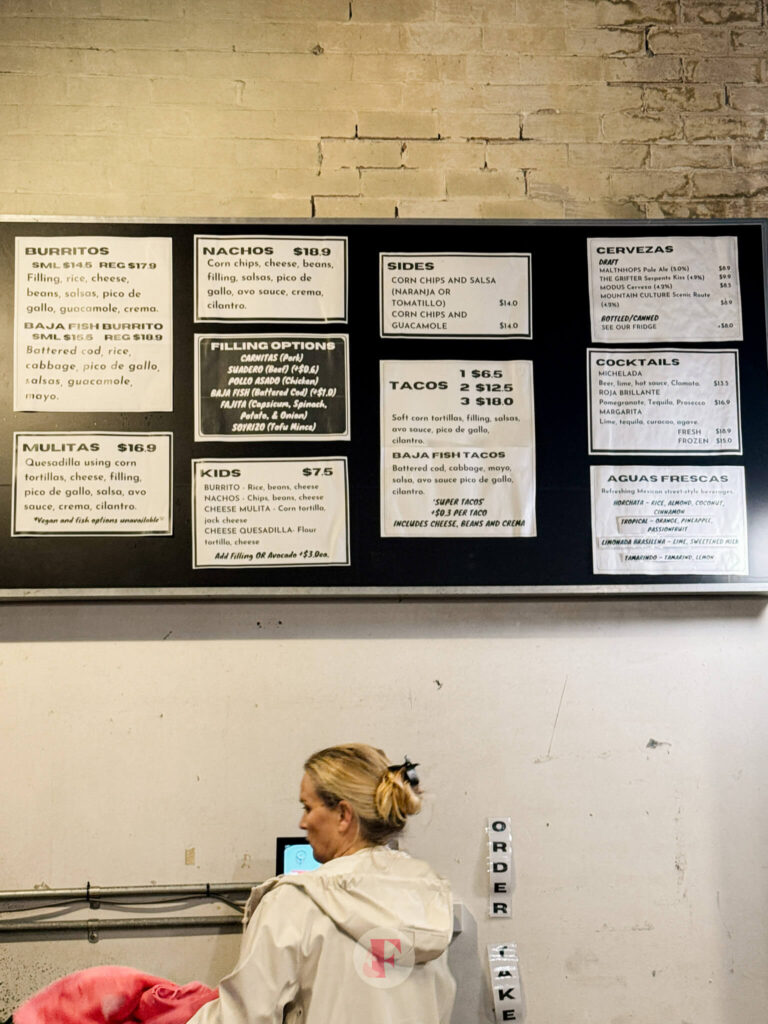 BURRITOS
SML $14.5 REG $17.9
Filling, rice, cheese,
beans, salsas, pico de
gallo, guacamole, crema.
BAJA FISH BURRITO
SML $15.5 REG $18.9
Battered cod, rice,
cabbage, pico de gallo,
salsas, guacamole,
mayo.
MULITAS $16.9
Quesadilla using corn
tortillas, cheese, filling,
pico de gallo, salsa, avo
sauce, crema, cilantro.
*Vegan and fish options unavailable*
NACHOS $18.9
Corn chips, cheese, beans,
filling, salsas, pico de
gallo, avo sauce, crema,
cilantro.
FILLING OPTIONS
CARNITAS (Pork)
SUADERO (Beef) (+$0.6)
POLLO ASADO (Chicken)
BAJA FISH (Battered Cod) (+$1.0)
FAJITA (Capsicum, Spinach,
Potato, & Onion)
SOYRIZO (Tofu Mince)
KIDS $7.5
BURRITO - Rice, beans, cheese
NACHOS - Chips, beans, cheese
CHEESE MULITA - Corn tortilla,
jack cheese
CHEESE QUESADILLA- Flour
tortilla, cheese
Add Filling OR Avocado +$3.0ea.
SIDES
CORN CHIPS AND SALSA
(NARANJA OR
TOMATILLO) $14.0
CORN CHIPS AND
GUACAMOLE $14.0
TACOS
1 $6.5
2 $12.5
3 $18.0
Soft corn tortillas, filling, salsas,
avo sauce, pico de gallo,
cilantro.
BAJA FISH TACOS
Battered cod, cabbage, mayo,
salsa, avo sauce pico de gallo,
cilantro.
*SUPER TACOS*
+$0.3 PER TACO
INCLUDES CHEESE, BEANS AND CREMA
CERVEZAS
DRAFT
MALTNHOPS Pale Ale (5.0%) $8.9
THE GRIFTER Serpents Kiss (4.9%) $9.9
MODUS Cerveza (4.2%) $8.5
MOUNTAIN CULTURE Scenic Route
(4.2%) $8.9
BOTTLED/CANNED
SEE OUR FRIDGE +$8.0
COCKTAILS
MICHELADA
Beer, lime, hot sauce, Clamato. $13.5
ROJA BRILLANTE
Pomegranate, Tequila, Prosecco $16.9
MARGARITA
Lime, tequila, curacao, agave.
FRESH $18.9
FROZEN $15.0
AGUAS FRESCAS
Refreshing Mexican street-style beverages.
HORCHATA - RICE, ALMOND, COCONUT,
CINNAMON
TROPICAL - ORANGE, PINEAPPLE,
PASSIONFRUIT
LIMONADA BRASILENA - LIME, SWEETENED MILK
TAMARINDO - TAMARIND, LEMON
ORDER
TAKE
F